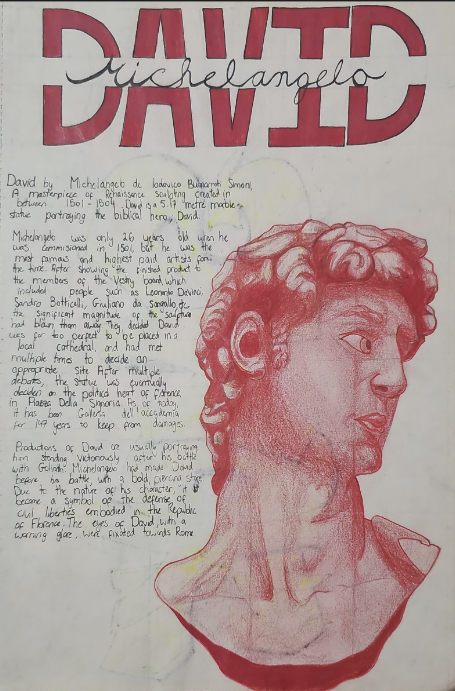 DAVID
Michelangelo
David by Michelangelo de lodovico Buonarroti Simoni,
A masterpiece of Renaissance sculpting created in
between 1501 - 1504. David is a 5.17 metre marble
statue portraying the biblical hero, David.
Michelangelo was only 26 years old when he
was commissioned in 1501, but he was the
most famous and highest paid artists for
the time. After showing the finished product to
the members of the Vestry board, which
included people such as Leonardo Davinci,
Sandro Botticelli, Giuliano da Sangallo, etc
the significant magnitude of the sculpture
had blown them away. They decided David
was far too perfect to be placed in a
local cathedral, and had met
multiple times to decide an
appropriate site. After multiple
debates, the statue was eventually
decided on the political heart of florence,
in Piazza Della Signoria. As of today,
it has been Galleria dell'accademia
for 147 years to keep from damages.
Productions of David are usually portraying
him standing victoriously after his battle
with Goliath. Michelangelo had made David
before his battle, with a bold, piercing stare
Due to the nature of his character, it
became a symbol of the defense of
civil liberties embodied in the Republic
of Florence. The eyes of David, with a
warning glare, were fixated towards Rome